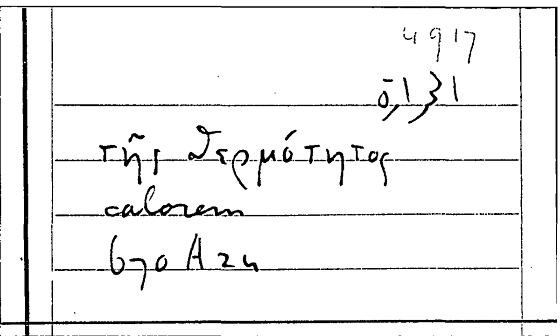 4917
τῆς θερμότητος
calorem
670 A 24